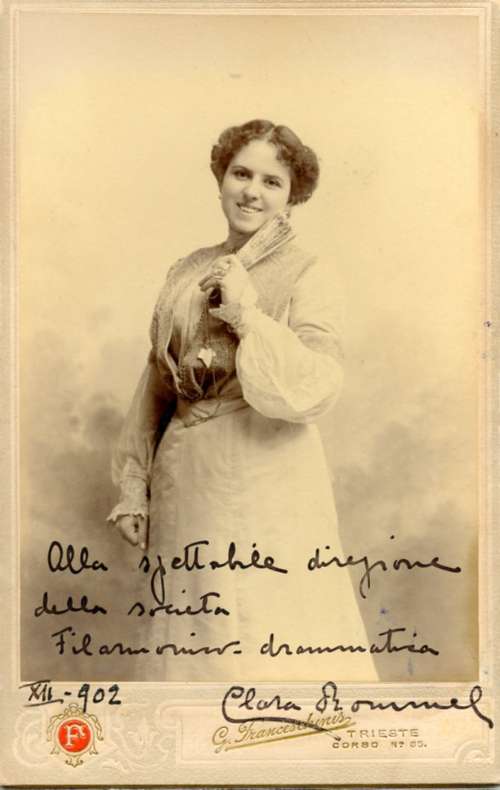 Alla spettabile direzione
della societa
Filarmonico-drammatica
XII-902
Clara Rommel
G. Franceschinis
TRIESTE
CORSO Nº
F